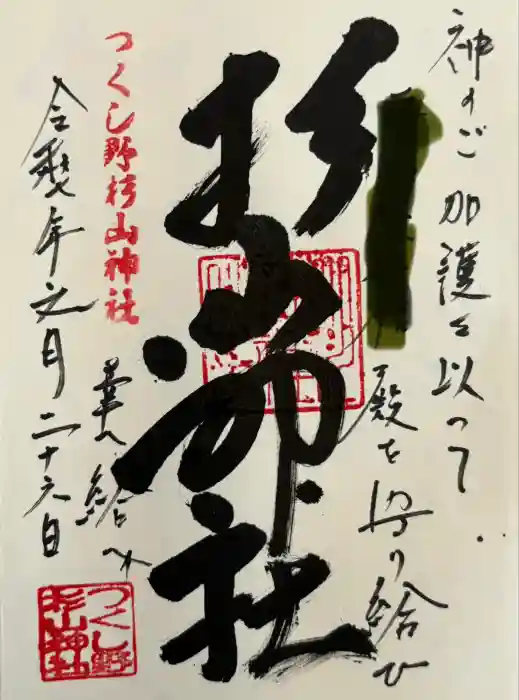 神のご加護を以って
殿を守り給ひ
幸へ給へ
杉山神社
つくし野杉山神社
年 月二十六日
つくし野
杉山神社